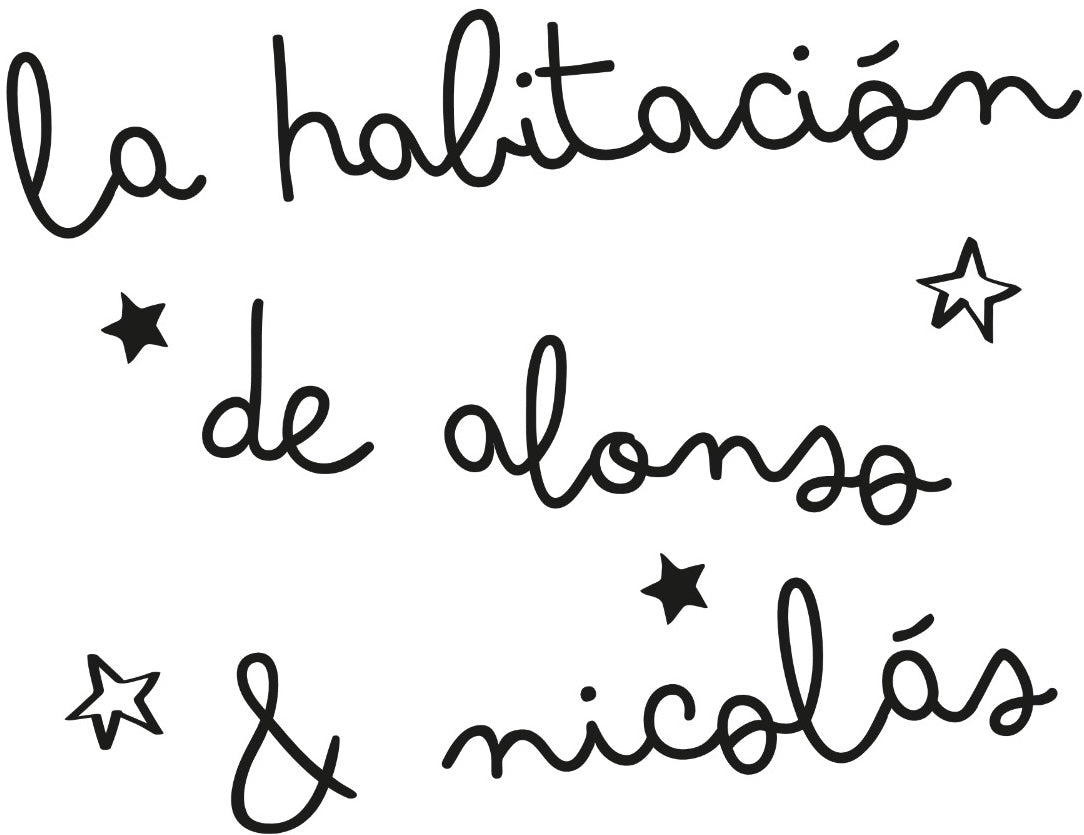 la habitación
de alonso
& nicolás